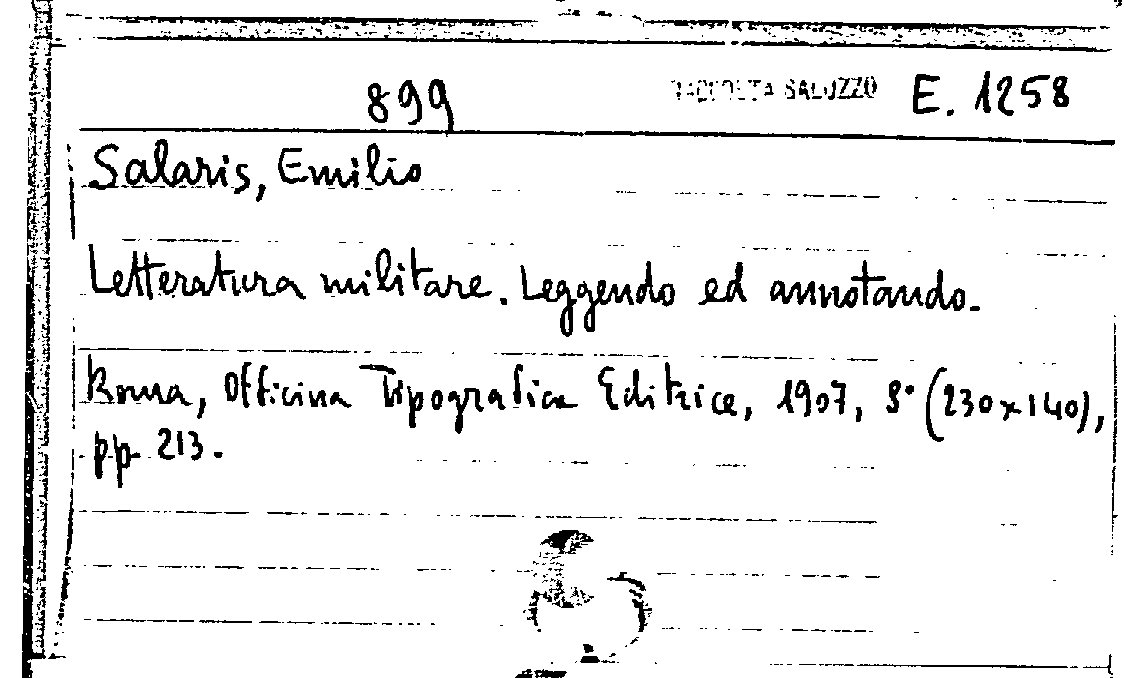 899 RACCOLTA SALUZZO E. 1258
Salaris, Emilio
Letteratura militare. Leggendo ed annotando.
Roma, Officina Tipografica Editrice, 1907, 8° (230x140),
pp. 213.